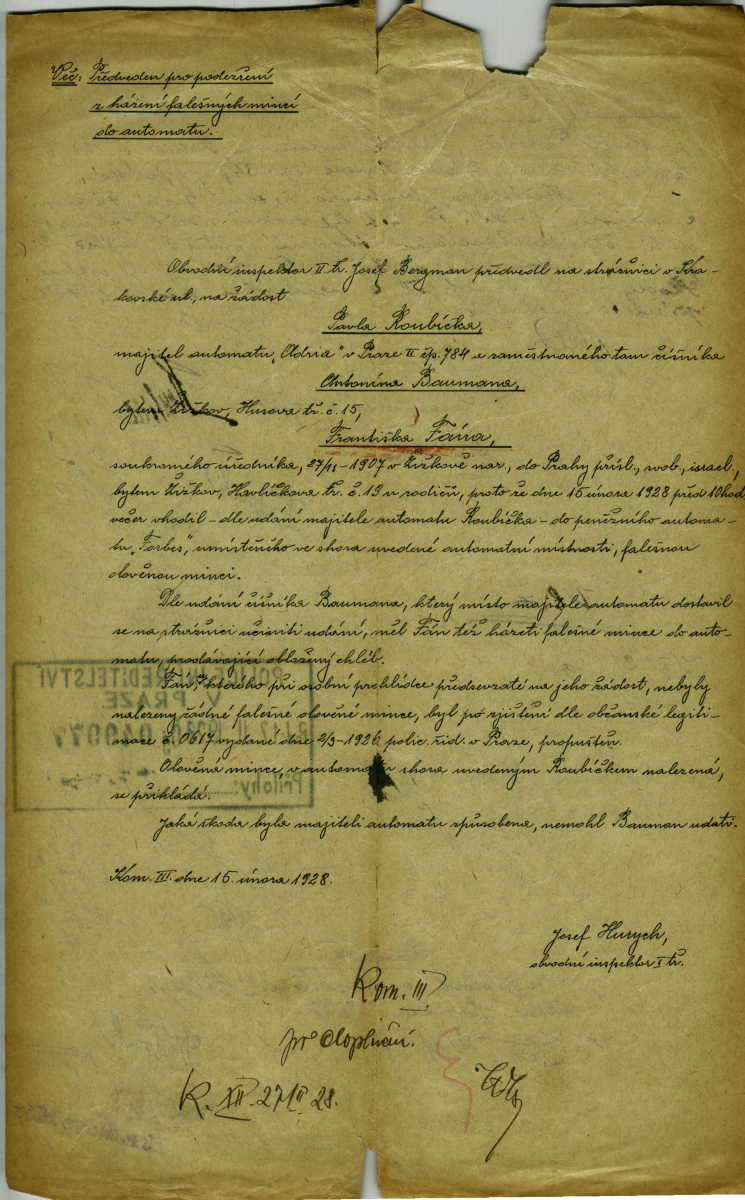 Věc: Předveden pro podezření
z házení falešných mincí
do automatu.
Obvodní inspektor II tř. Josef Bergman předvedl na strážnici v Kra-
kovské ul., na žádost
Pavla Roubíčka,
majitel automatu „Adria" v Praze II čp. 784 a zaměstnaného tam číšníka
Antonína Baumana,
bytem Žižkov, Husova tř. č. 15,
Františka Fáña,
soukromého úředníka, 27/11 - 1907 v Žižkově nar., do Prahy přísl., svob., israel.,
bytem Žižkov, Havlíčkova tř. č. 19 u rodičů, proto že dne 15 února 1928 před 10 hod
večer vhodil - dle udání majitele automatu Roubíčka - do peněžního automa-
tu „Forbes", umístěného ve shora uvedené automatní místnosti, falešnou
olověnou minci.
Dle udání číšníka Baumana, který místo majitele automatu dostavil
se na strážnici učiniti udání, měl Fáñ též házeti falešné mince do auto-
matu, prodávající obložený chléb.
Fáñ, u kterého při osobní prohlídce předsevzaté na jeho žádost, nebyly
nalezeny žádné falešné olověné mince, byl po zjištění dle občanské legiti-
mace č. 0617 vydané dne 2/3 - 1926 polic. řid. v Praze, propuštěn.
Olověná mince, v automatu shora uvedeným Roubíčkem nalezená,
se přikládá.
Jaká škoda byla majiteli automatu způsobena, nemohl Bauman udati.
Kom. III. dne 15. února 1928.
Josef Hurych,
obvodní inspektor I tř.
Kom. III.
pro doplnění.
K. XII. 27/II 28.
ŘEDITELSTVÍ
V PRAZE
Přílohy: